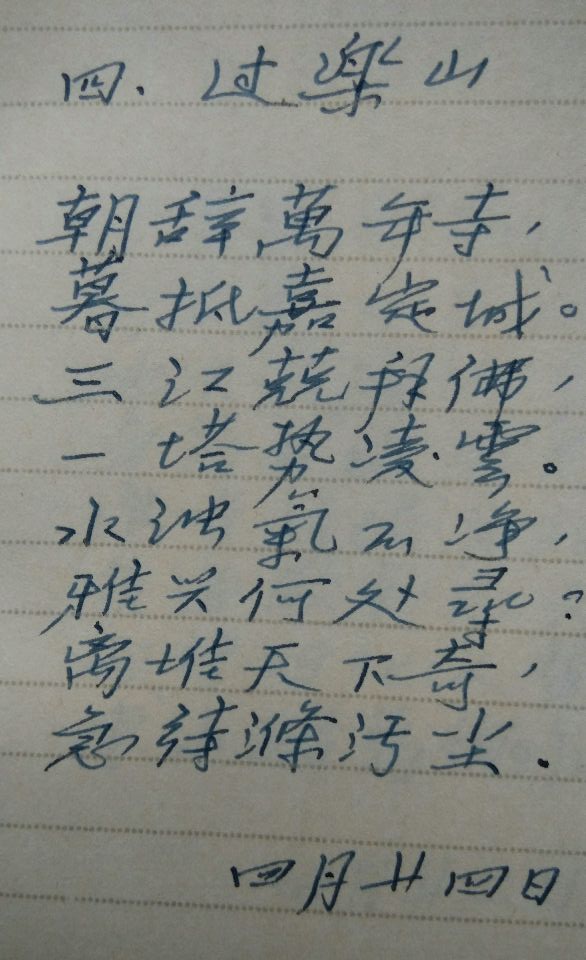 四.过樂山
朝辞萬年寺，
暮抵嘉定城。
三江競拜佛，
一塔势凌雲。
水浊氣不净，
雅兴何处尋？
离堆天下奇，
急待滌污尘.
四月廿四日